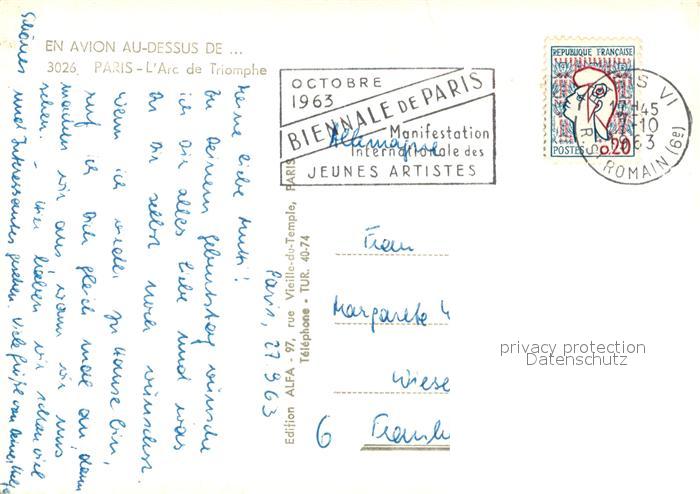 EN AVION AU-DESSUS DE ...
3026 PARIS - L'Arc de Triomphe
OCTOBRE
1963
BIENNALE DE PARIS
Manifestation
Internationale des
JEUNES ARTISTES
REPUBLIQUE FRANÇAISE
POSTES 0,20
PARIS VI
45
-10
1963
R. ST ROMAIN (6e)
Allemagne
Frau
Margarete
Wiese
6
privacy protection
Datenschutz
Edition ALFA - 97, rue Vieille-du-Temple, PARIS
Téléphone - TUR. 40-74
Paris, 27 9 63
Meine liebe Mutti!
Zu Deinem Geburtstag wünsche
ich Dir alles Liebe und was
Du Dir selbst noch wünschst.
Wenn ich wieder zu Hause bin,
ruf ich Dich gleich mal an, dann
machen wir aus wann wir uns
sehen. - Hier haben wir schon viel
Schönes und Interessantes gesehen. Viele Grüße von